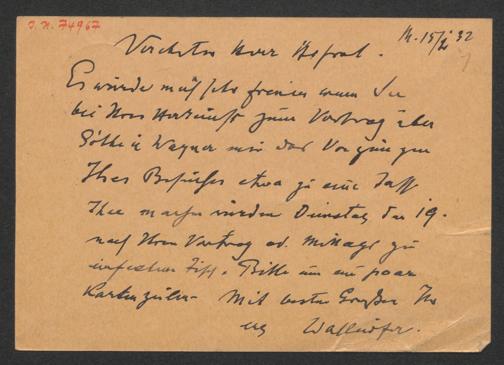 I.N. 74967
M. 15/I 32
Verehrter Herr Hofrat.
Es würde mich sehr freuen wenn Sie
bei Ihrer Herkunft zum Vortrag über
Göthe u Wagner mir das Vergnügen
Ihres Besuches etwa zu eine Tasse
Thee machen würden Dienstag den 19.
nach Ihrem Vortrag od. Mittags zu
einfachem Tisch. Bitte um ein paar
Kartenzeilen Mit besten Grüßen Ihr
erg